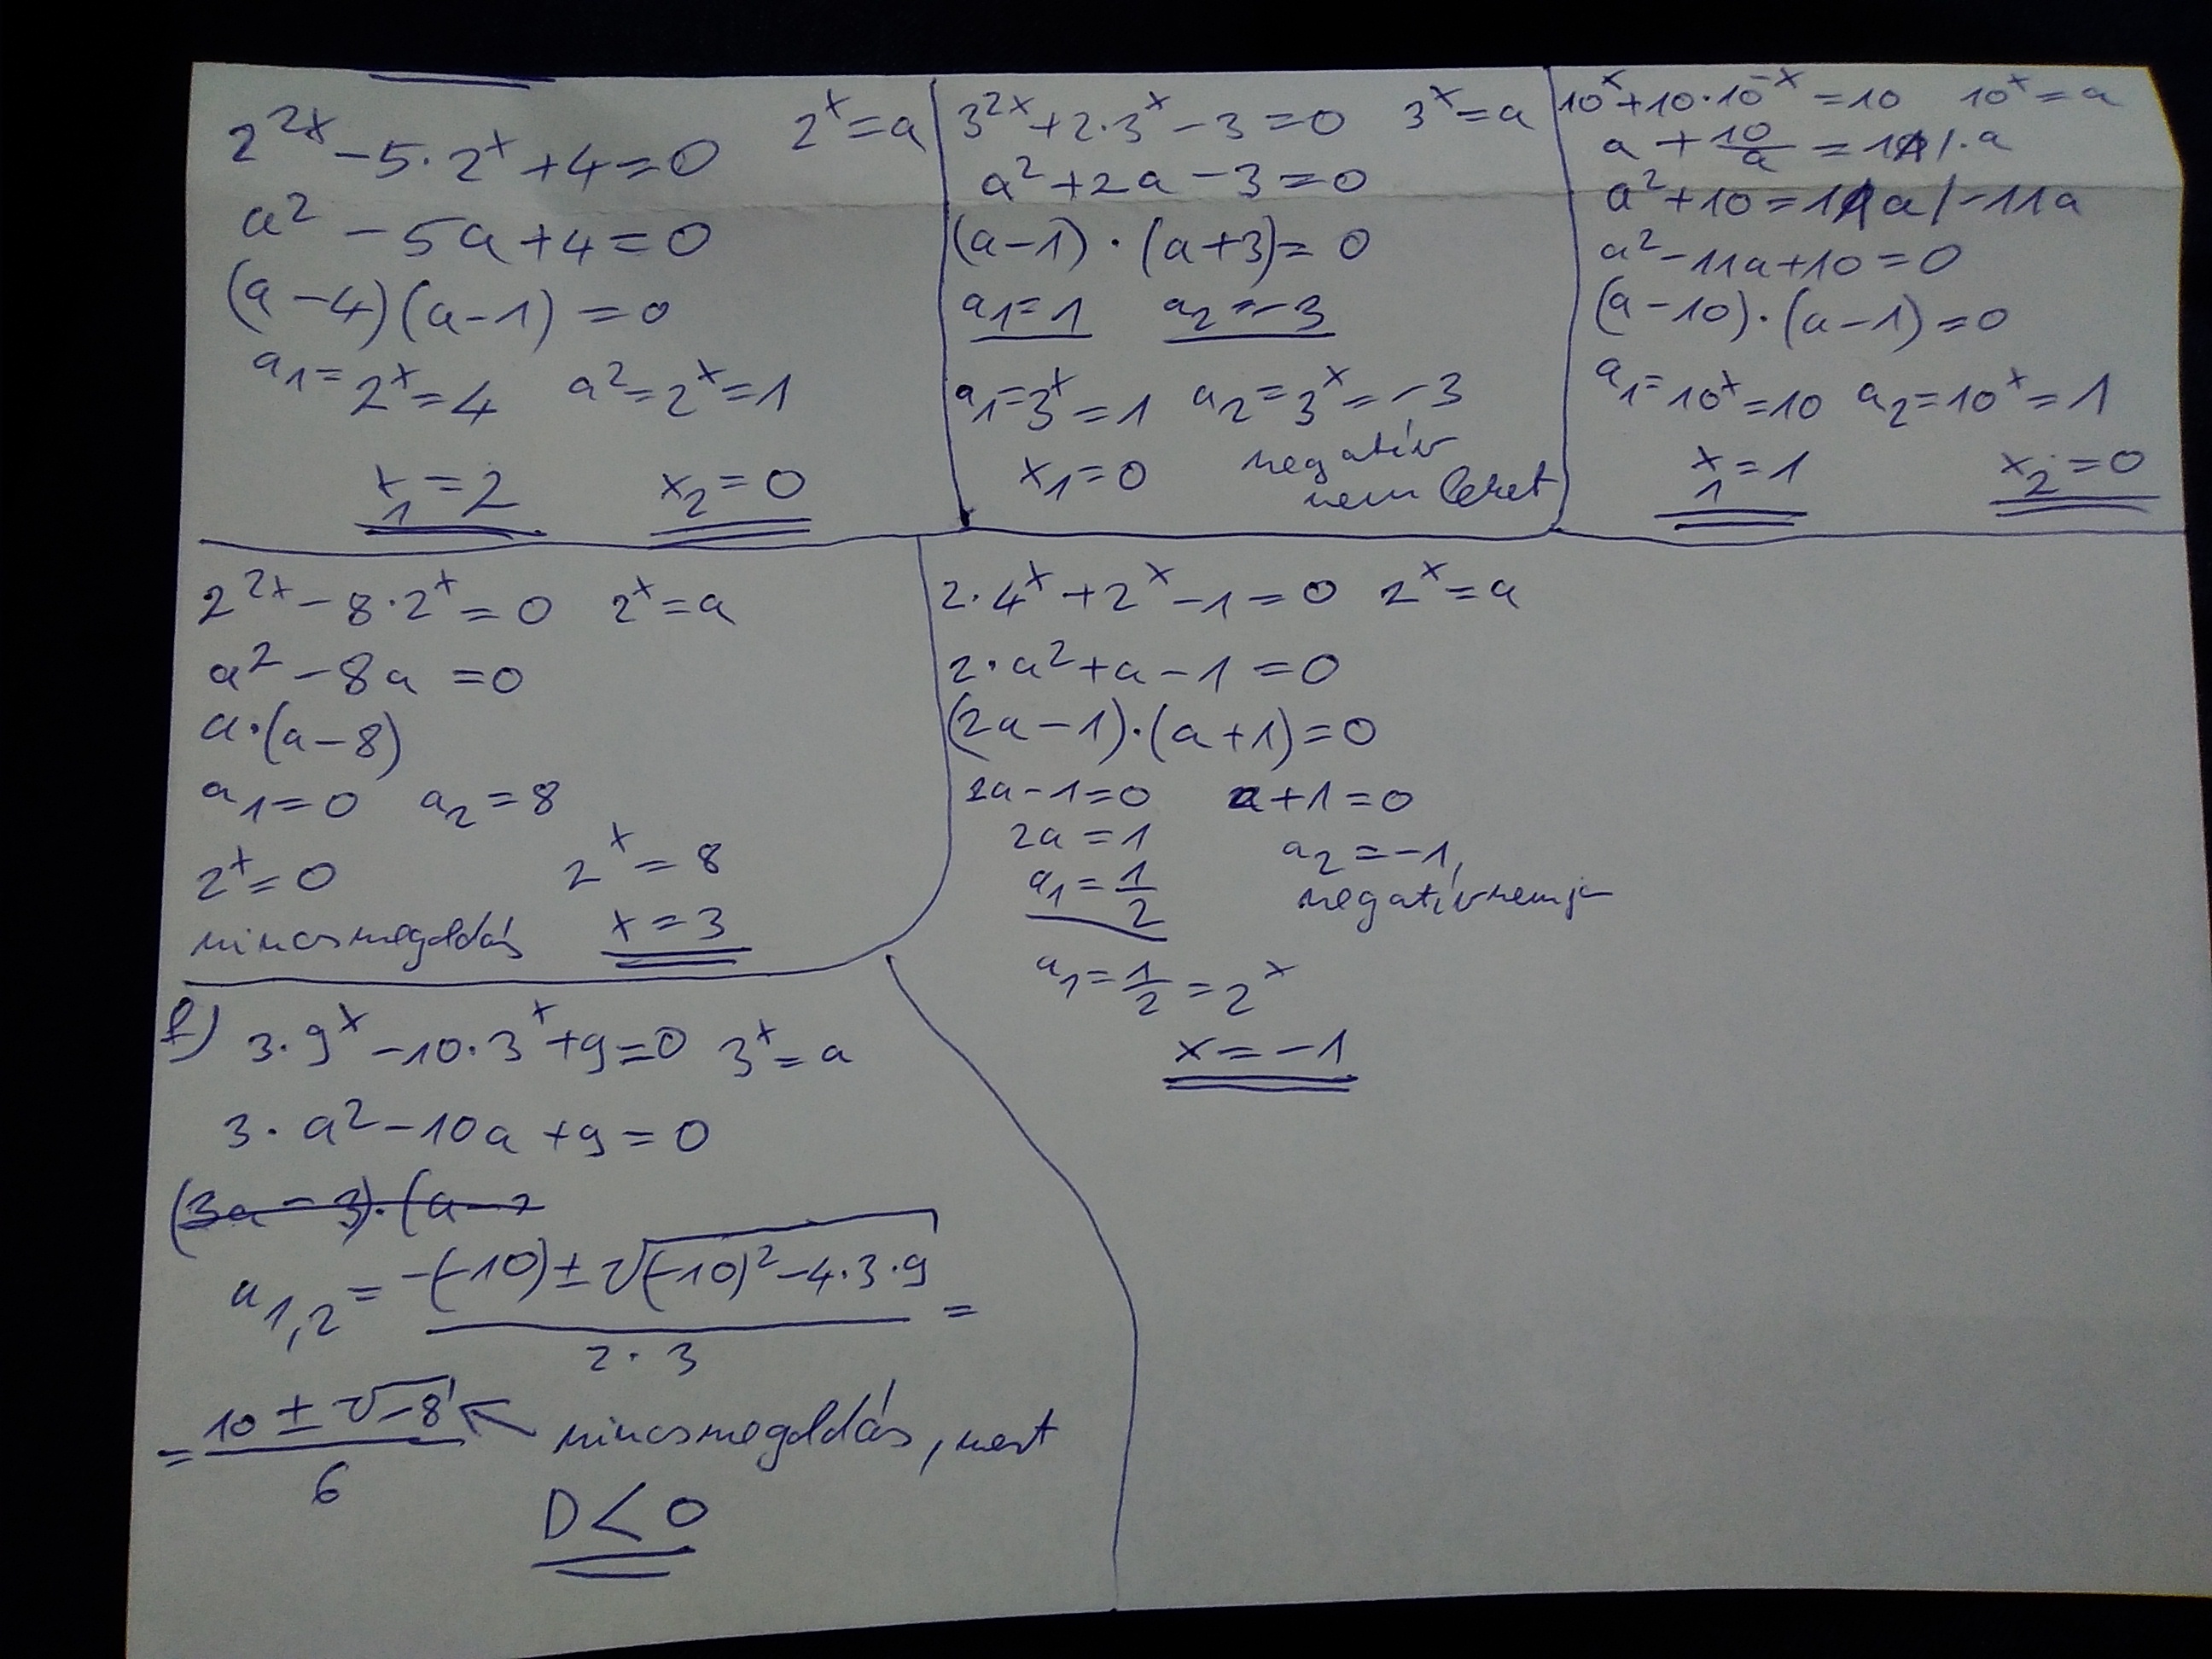 2^{2x} - 5·2^x + 4 = 0   2^x = a
a² - 5a + 4 = 0
(a - 4)(a - 1) = 0
a₁ = 2^x = 4   a² = 2^x = 1
x₁ = 2   x₂ = 0
3^{2x} + 2·3^x - 3 = 0   3^x = a
a² + 2a - 3 = 0
(a - 1)·(a + 3) = 0
a₁ = 1   a₂ = -3
a₁ = 3^x = 1   a₂ = 3^x = -3
x₁ = 0   negatív
nem lehet
10^x + 10·10^{-x} = 10   10^x = a
a + 10/a = 11 /·a
a² + 10 = 11a / -11a
a² - 11a + 10 = 0
(a - 10)·(a - 1) = 0
a₁ = 10^x = 10   a₂ = 10^x = 1
x₁ = 1   x₂ = 0
2^{2x} - 8·2^x = 0   2^x = a
a² - 8a = 0
a·(a - 8)
a₁ = 0   a₂ = 8
2^x = 0   2^x = 8
nincs megoldás   x = 3
2·4^x + 2^x - 1 = 0   2^x = a
2·a² + a - 1 = 0
(2a - 1)·(a + 1) = 0
2a - 1 = 0   a + 1 = 0
2a = 1   a₂ = -1,
a₁ = 1/2   negatív nem jó
a₁ = 1/2 = 2^x
x = -1
f) 3·9^x - 10·3^x + 9 = 0   3^x = a
3·a² - 10a + 9 = 0
(3a - 3)·(a -
a₁,₂ = (-(-10) ± √((-10)² - 4·3·9)) / (2·3) =
= (10 ± √-8) / 6 ← nincs megoldás, mert
D < 0